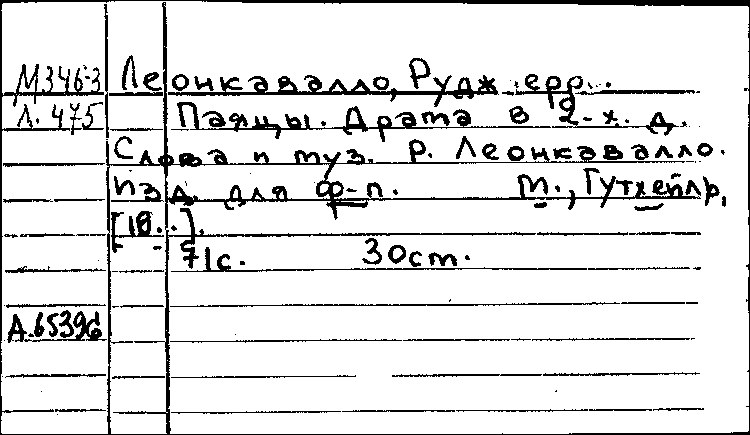 М346-3 Леонкавалло, Руджерр..
Л. 475 Паяцы. Драма в 2-х. д.
Слова и муз. Р. Леонкавалло.
Изд. для ф-п. М., Гутхейлр,
[18..].
71с. 30см.
А.65396